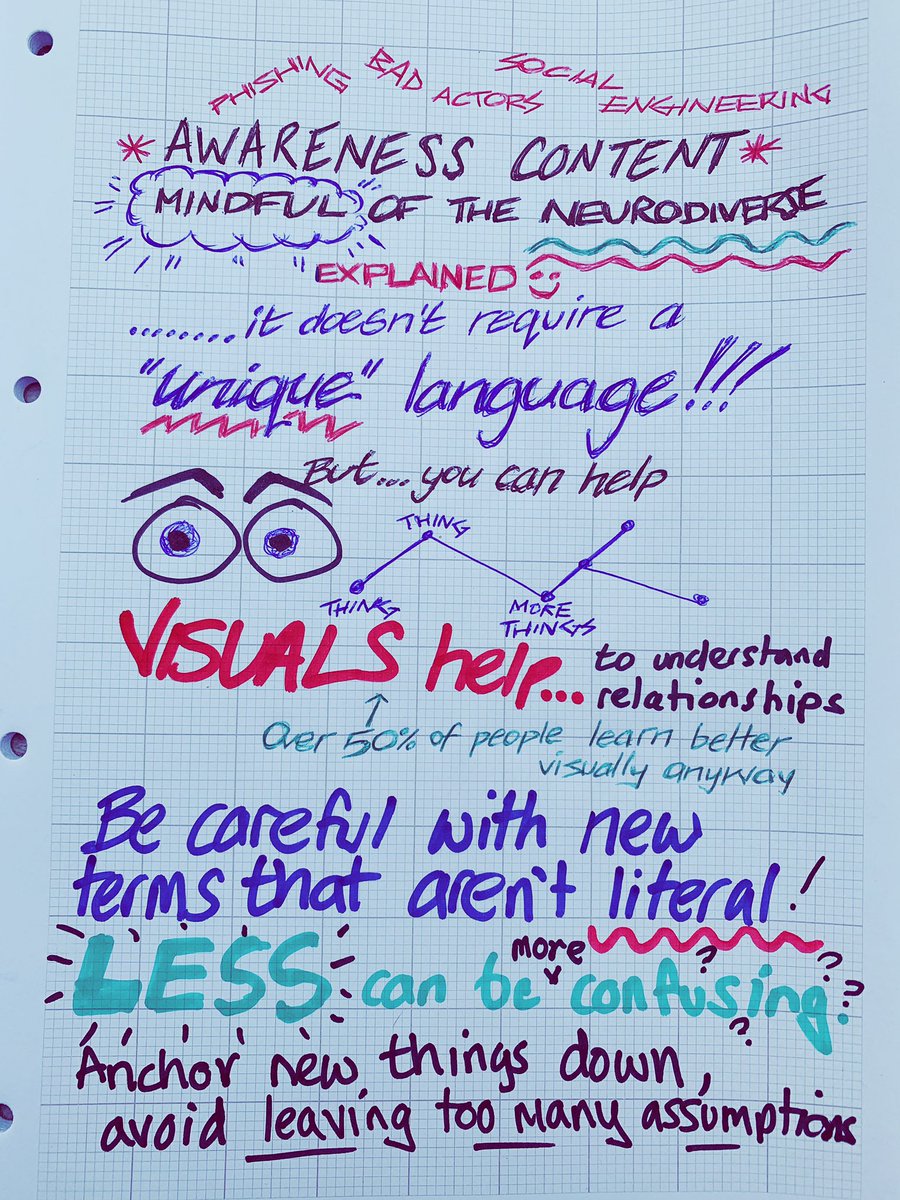 PHISHING BAD ACTORS SOCIAL ENGINEERING
* AWARENESS CONTENT *
MINDFUL OF THE NEURODIVERSE
EXPLAINED
........it doesn't require a
"unique" language!!!
But....you can help
THING
THING
MORE
THINGS
VISUALS help... to understand
relationships
Over 50% of people learn better
visually anyway
Be careful with new
terms that aren't literal!
LESS can be more confusing????
Anchor new things down,
avoid leaving too many assumptions